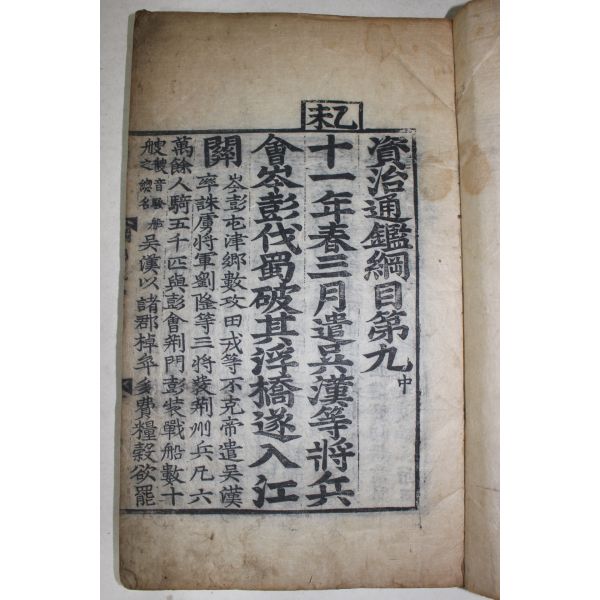 乙未
資治通鑑綱目第九中
十一年春三月遣吳漢等將兵
會岑彭伐蜀破其浮橋遂入江
關
岑彭屯津鄉數攻田戎等不克帝遣吳漢
率誅虜將軍劉隆等三將發荊州兵凡六
萬餘人騎五千匹與彭會荊門彭裝戰船數十
艘
之總名
吳漢以諸郡棹卒多費糧穀欲罷